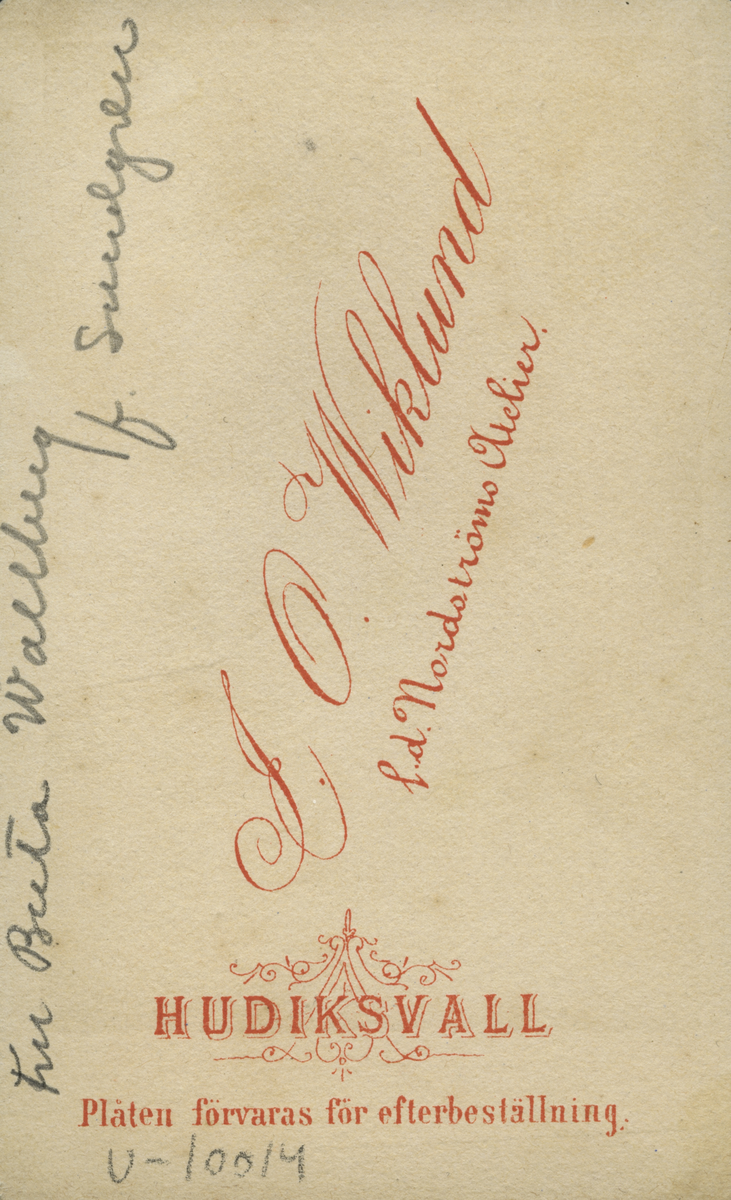 Fru Berta Wallberg
f. Sundgren
I. O. Wiklund
f.d. Nordströms Atelier.
HUDIKSVALL
Plåten förvaras för efterbeställning.
U-10014